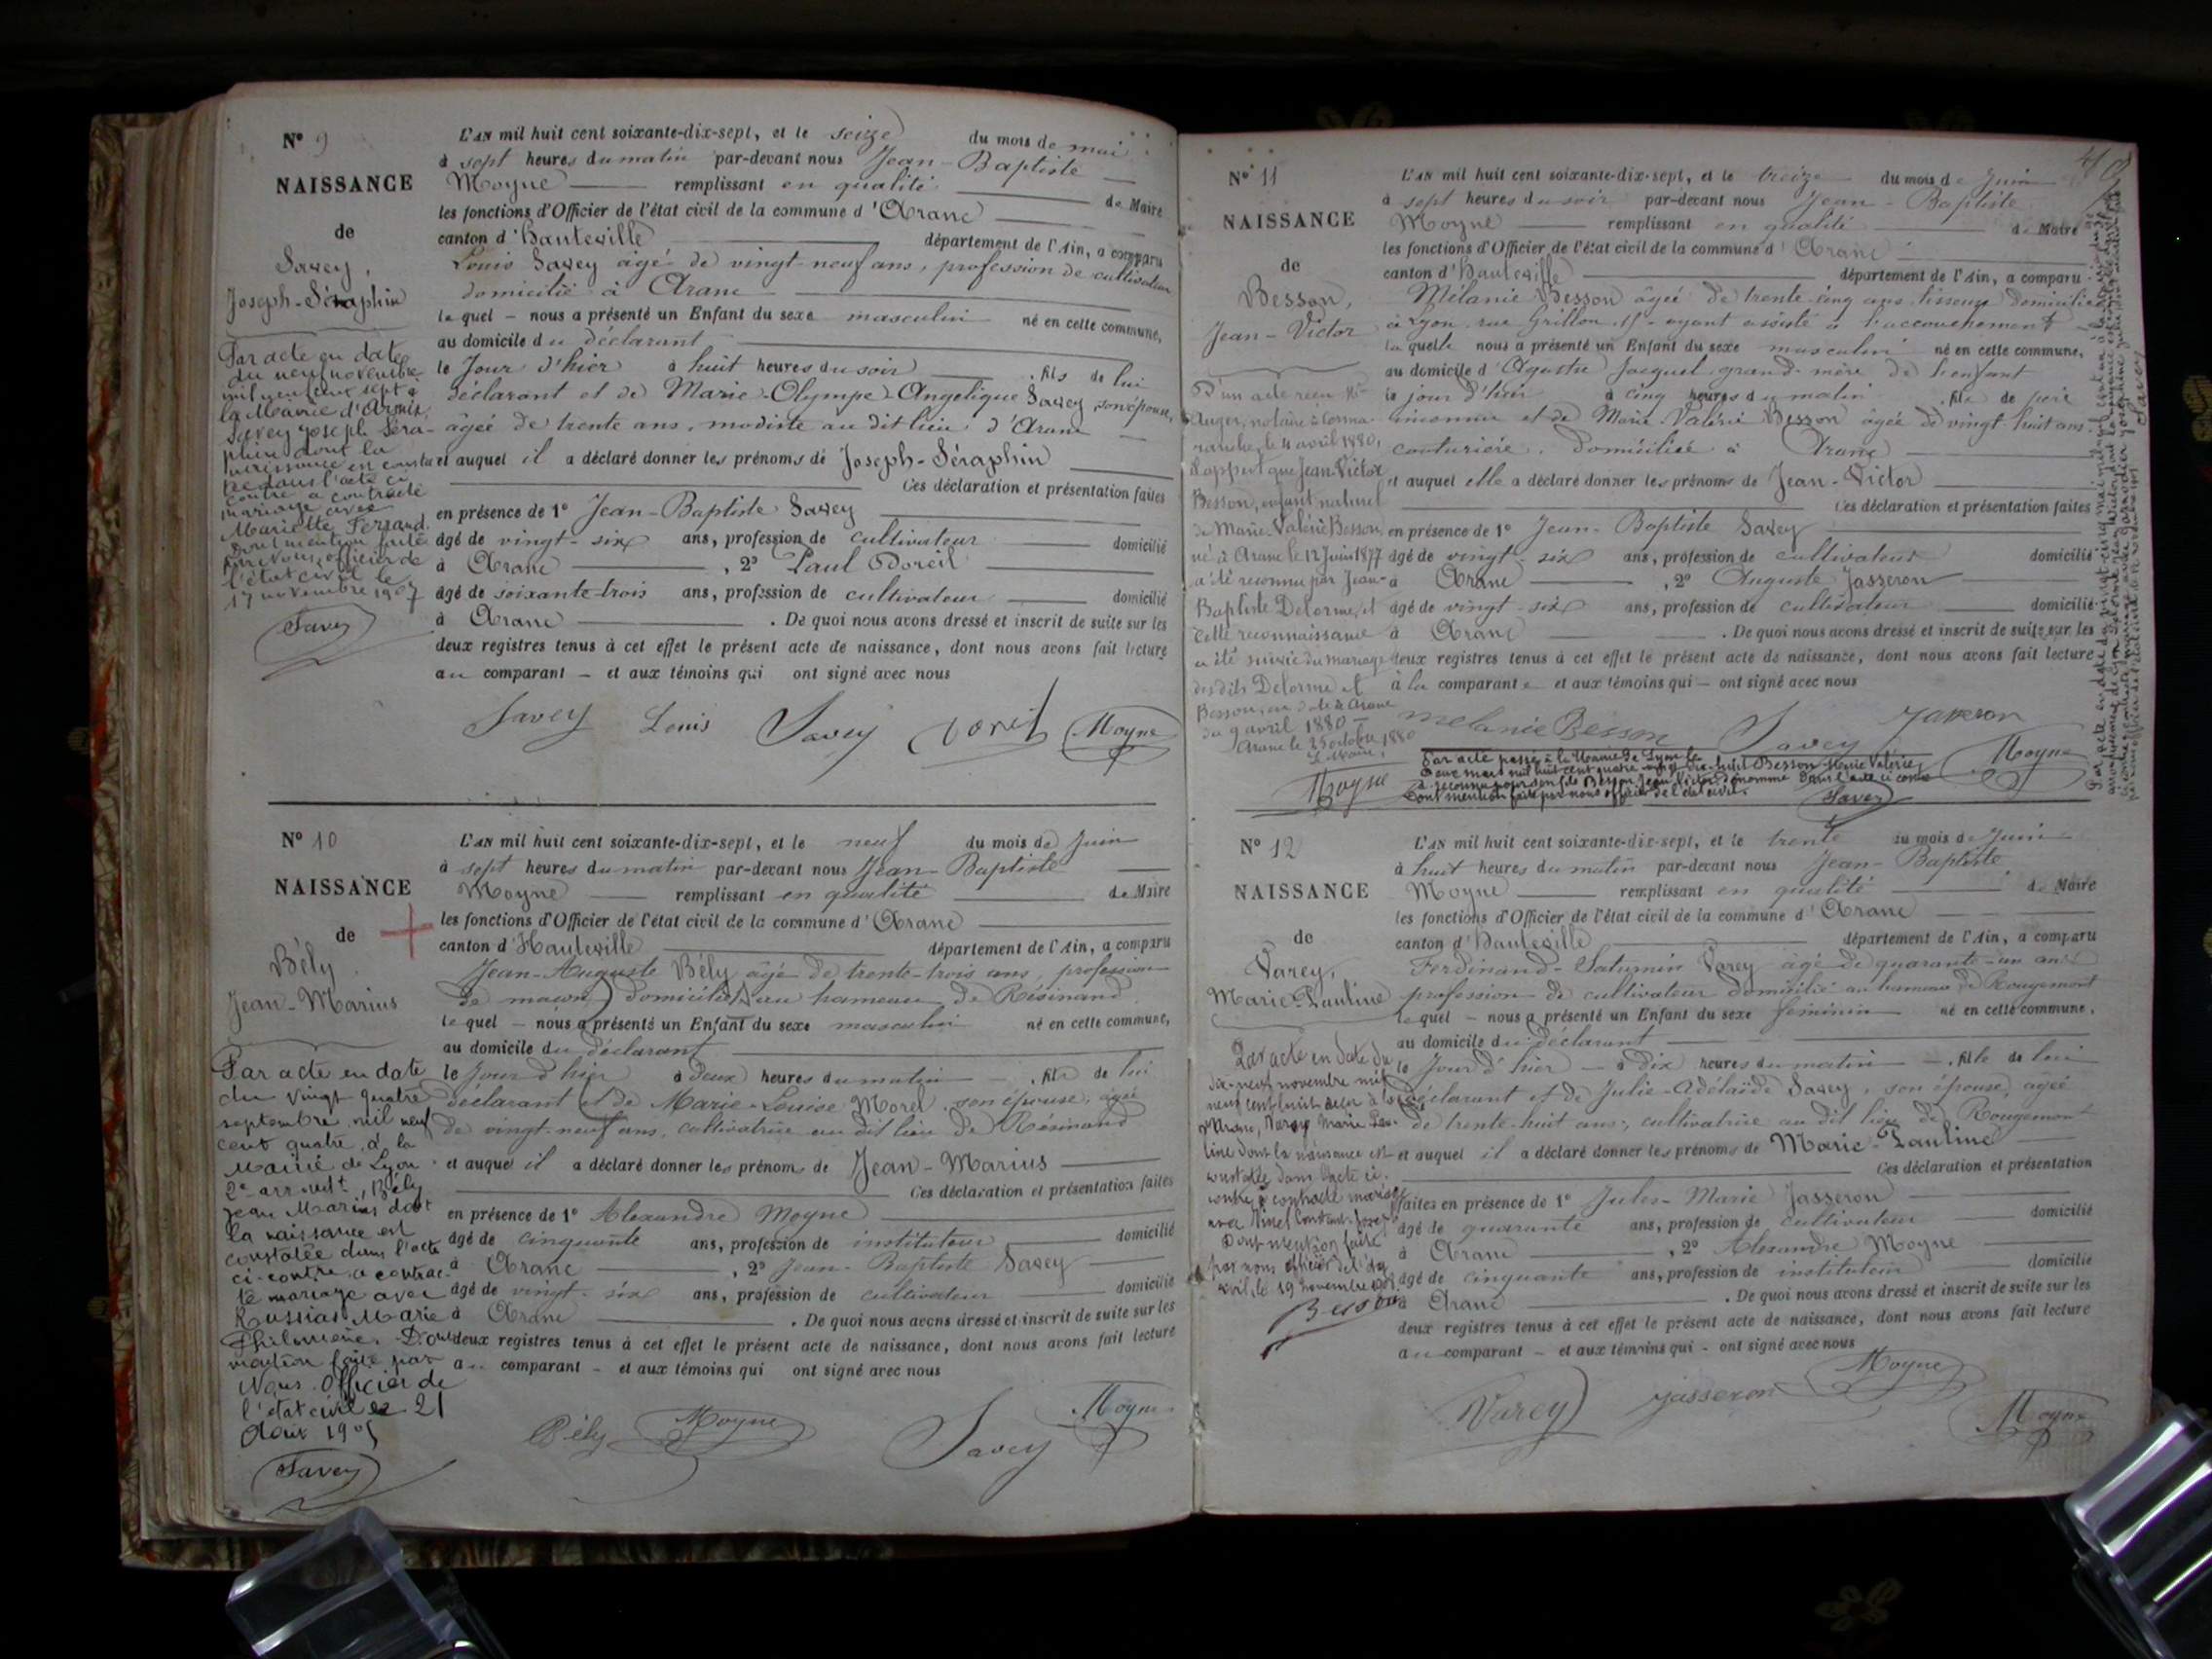 N° 9
NAISSANCE
de
Savey,
Joseph-Séraphin
Par acte en date
du neuf novembre
mil neuf cent sept à
la Mairie d'
Savey Joseph Séra-
phin dont la
naissance est consta
tée dans l'acte ci
contre a contracté
mariage avec
Mariette Ferrand.
Dont mention faite
par nous, officier de
l'état civil le
17 novembre 1907
Savey
L'AN mil huit cent soixante-dix-sept, et le seize du mois de mai
à sept heures du matin par-devant nous Jean-Baptiste
Moyne remplissant en qualité de Maire
les fonctions d'Officier de l'état civil de la commune d'Aranc
canton d'hauteville département de l'Ain, a comparu
Louis Savey âgé de vingt-neuf ans, profession de cultivateur
domicilié à Aranc
lequel – nous a présenté un Enfant du sexe masculin né en cette commune,
au domicile du déclarant
le Jour d'hier à huit heures du soir, fils de lui
déclarant et de Marie-Olympe-Angelique Savey, son épouse,
âgée de trente ans, modiste au dit lieu d'Aranc
et auquel il a déclaré donner les prénoms de Joseph-Séraphin
Ces déclaration et présentation faites
en présence de 1° Jean-Baptiste Savey
âgé de vingt-six ans, profession de cultivateur domicilié
à Aranc, 2° Paul Doreil
âgé de soixante-trois ans, profession de cultivateur domicilié
à Aranc. De quoi nous avons dressé et inscrit de suite sur les
deux registres tenus à cet effet le présent acte de naissance, dont nous avons fait lecture
au comparant – et aux témoins qui ont signé avec nous
Savey Louis Savey Doreil Moyne
N° 10
NAISSANCE
de
Bély
Jean-Marius
Par acte en date
du vingt quatre
septembre mil neuf
cent quatre, à la
Mairie de Lyon
2e arrondt, Bély
Jean Marius dont
la naissance est
constatée dans l'acte
ci-contre a contrac-
té mariage avec
Russias Marie
Philomène. Dont
mention faite par
Nous Officier de
l'état civil le 21
Août 1905
Savey
L'AN mil huit cent soixante-dix-sept, et le neuf du mois de Juin
à sept heures du matin par-devant nous Jean-Baptiste
Moyne remplissant en qualité de Maire
les fonctions d'Officier de l'état civil de la commune d'Aranc
canton d'Hauteville département de l'Ain, a comparu
Jean-Auguste Bély âgé de trente-trois ans, profession
de maçon domicilié au hameau de Résinand
lequel – nous a présenté un Enfant du sexe masculin né en cette commune,
au domicile du déclarant
le Jour d'hier à deux heures du matin, fils de lui
déclarant et de Marie-Louise Morel, son épouse, âgée
de vingt-neuf ans, cultivatrice au dit lieu de Résinand
et auquel il a déclaré donner les prénoms de Jean-Marius
Ces déclaration et présentation faites
en présence de 1° Alexandre Moyne
âgé de cinquante ans, profession de instituteur domicilié
à Aranc, 2° Jean-Baptiste Savey
âgé de vingt-six ans, profession de cultivateur domicilié
à Aranc. De quoi nous avons dressé et inscrit de suite sur les
deux registres tenus à cet effet le présent acte de naissance, dont nous avons fait lecture
au comparant – et aux témoins qui ont signé avec nous
Bély Moyne Savey Moyne
N° 11
NAISSANCE
de
Besson,
Jean-Victor
D'un acte reçu Me
Auger, notaire à Corma-
ranche, le 4 avril 1880,
il appert que Jean-Victor
Besson, enfant naturel
de Marie-Valérie Besson,
né à Aranc le 12 Juin 1877
a été reconnu par Jean-
Baptiste Delorme, et
cette reconnaissance
a été suivie du mariage
des dits Delorme et
Besson, en date à Aranc
du 9 avril 1880
Aranc le 25 octobre 1880
Le Maire,
Moyne
L'AN mil huit cent soixante-dix-sept, et le treize du mois de Juin
à sept heures du soir par-devant nous Jean-Baptiste
Moyne remplissant en qualité de Maire
les fonctions d'Officier de l'état civil de la commune d'Aranc
canton d'hauteville département de l'Ain, a comparu
Mélanie Besson âgée de trente-cinq ans, tisseuse domiciliée
à Lyon, rue Grillon, ayant assisté à l'accouchement
laquelle nous a présenté un Enfant du sexe masculin né en cette commune,
au domicile d'Agathe Jacquet, grand-mère de l'enfant
le jour d'hier à cinq heures du matin, fils de père
inconnu et de Marie-Valérie Besson âgée de vingt-huit ans
couturière, domiciliée à Aranc
et auquel elle a déclaré donner les prénoms de Jean-Victor
Ces déclaration et présentation faites
en présence de 1° Jean-Baptiste Savey
âgé de vingt-six ans, profession de cultivateur domicilié
à Aranc, 2° Auguste Jasseron
âgé de vingt-six ans, profession de cultivateur domicilié
à Aranc. De quoi nous avons dressé et inscrit de suite sur les
deux registres tenus à cet effet le présent acte de naissance, dont nous avons fait lecture
à la comparante et aux témoins qui – ont signé avec nous
Melanie Besson Savey Jasseron Moyne
Par acte passé à la Mairie de Lyon le
deux mars mil huit cent quatre vingt dix-huit Besson Marie Valérie
a reconnu pour son fils Besson Jean Victor dénommé dans l'acte ci contre
Dont mention faite par nous officier de l'état civil.
Savey
N° 12
NAISSANCE
de
Varey,
Marie-Pauline
Par acte en date du
dix-neuf novembre mil
neuf cent huit
d'Aranc, Varey Marie Pau-
line dont la naissance est
constatée dans l'acte ci-
contre a contracté mariage
avec Vinet Constant-Joseph
Dont mention faite
par nous officier de l'état
civil, le 19 novembre 1908
L'AN mil huit cent soixante-dix-sept, et le trente du mois de Juin
à huit heures du matin par-devant nous Jean-Baptiste
Moyne remplissant en qualité de Maire
les fonctions d'Officier de l'état civil de la commune d'Aranc
canton d'hauteville département de l'Ain, a comparu
Ferdinand-Saturnin Varey âgé de quarante-un ans
profession de cultivateur domicilié au hameau de Rougemont
lequel – nous a présenté un Enfant du sexe féminin né en cette commune,
au domicile du déclarant
le Jour d'hier à dix heures du matin, fille de lui
déclarant et de Julie-Adélaïde Savey, son épouse, âgée
de trente-huit ans, cultivatrice au dit lieu de Rougemont
et auquel il a déclaré donner les prénoms de Marie-Pauline
Ces déclaration et présentation
faites en présence de 1° Jules-Marie Jasseron
âgé de quarante ans, profession de cultivateur domicilié
à Aranc, 2° Alexandre Moyne
âgé de cinquante ans, profession de instituteur domicilié
à Aranc. De quoi nous avons dressé et inscrit de suite sur les
deux registres tenus à cet effet le présent acte de naissance, dont nous avons fait lecture
au comparant – et aux témoins qui – ont signé avec nous
Varey Jasseron Moyne Moyne